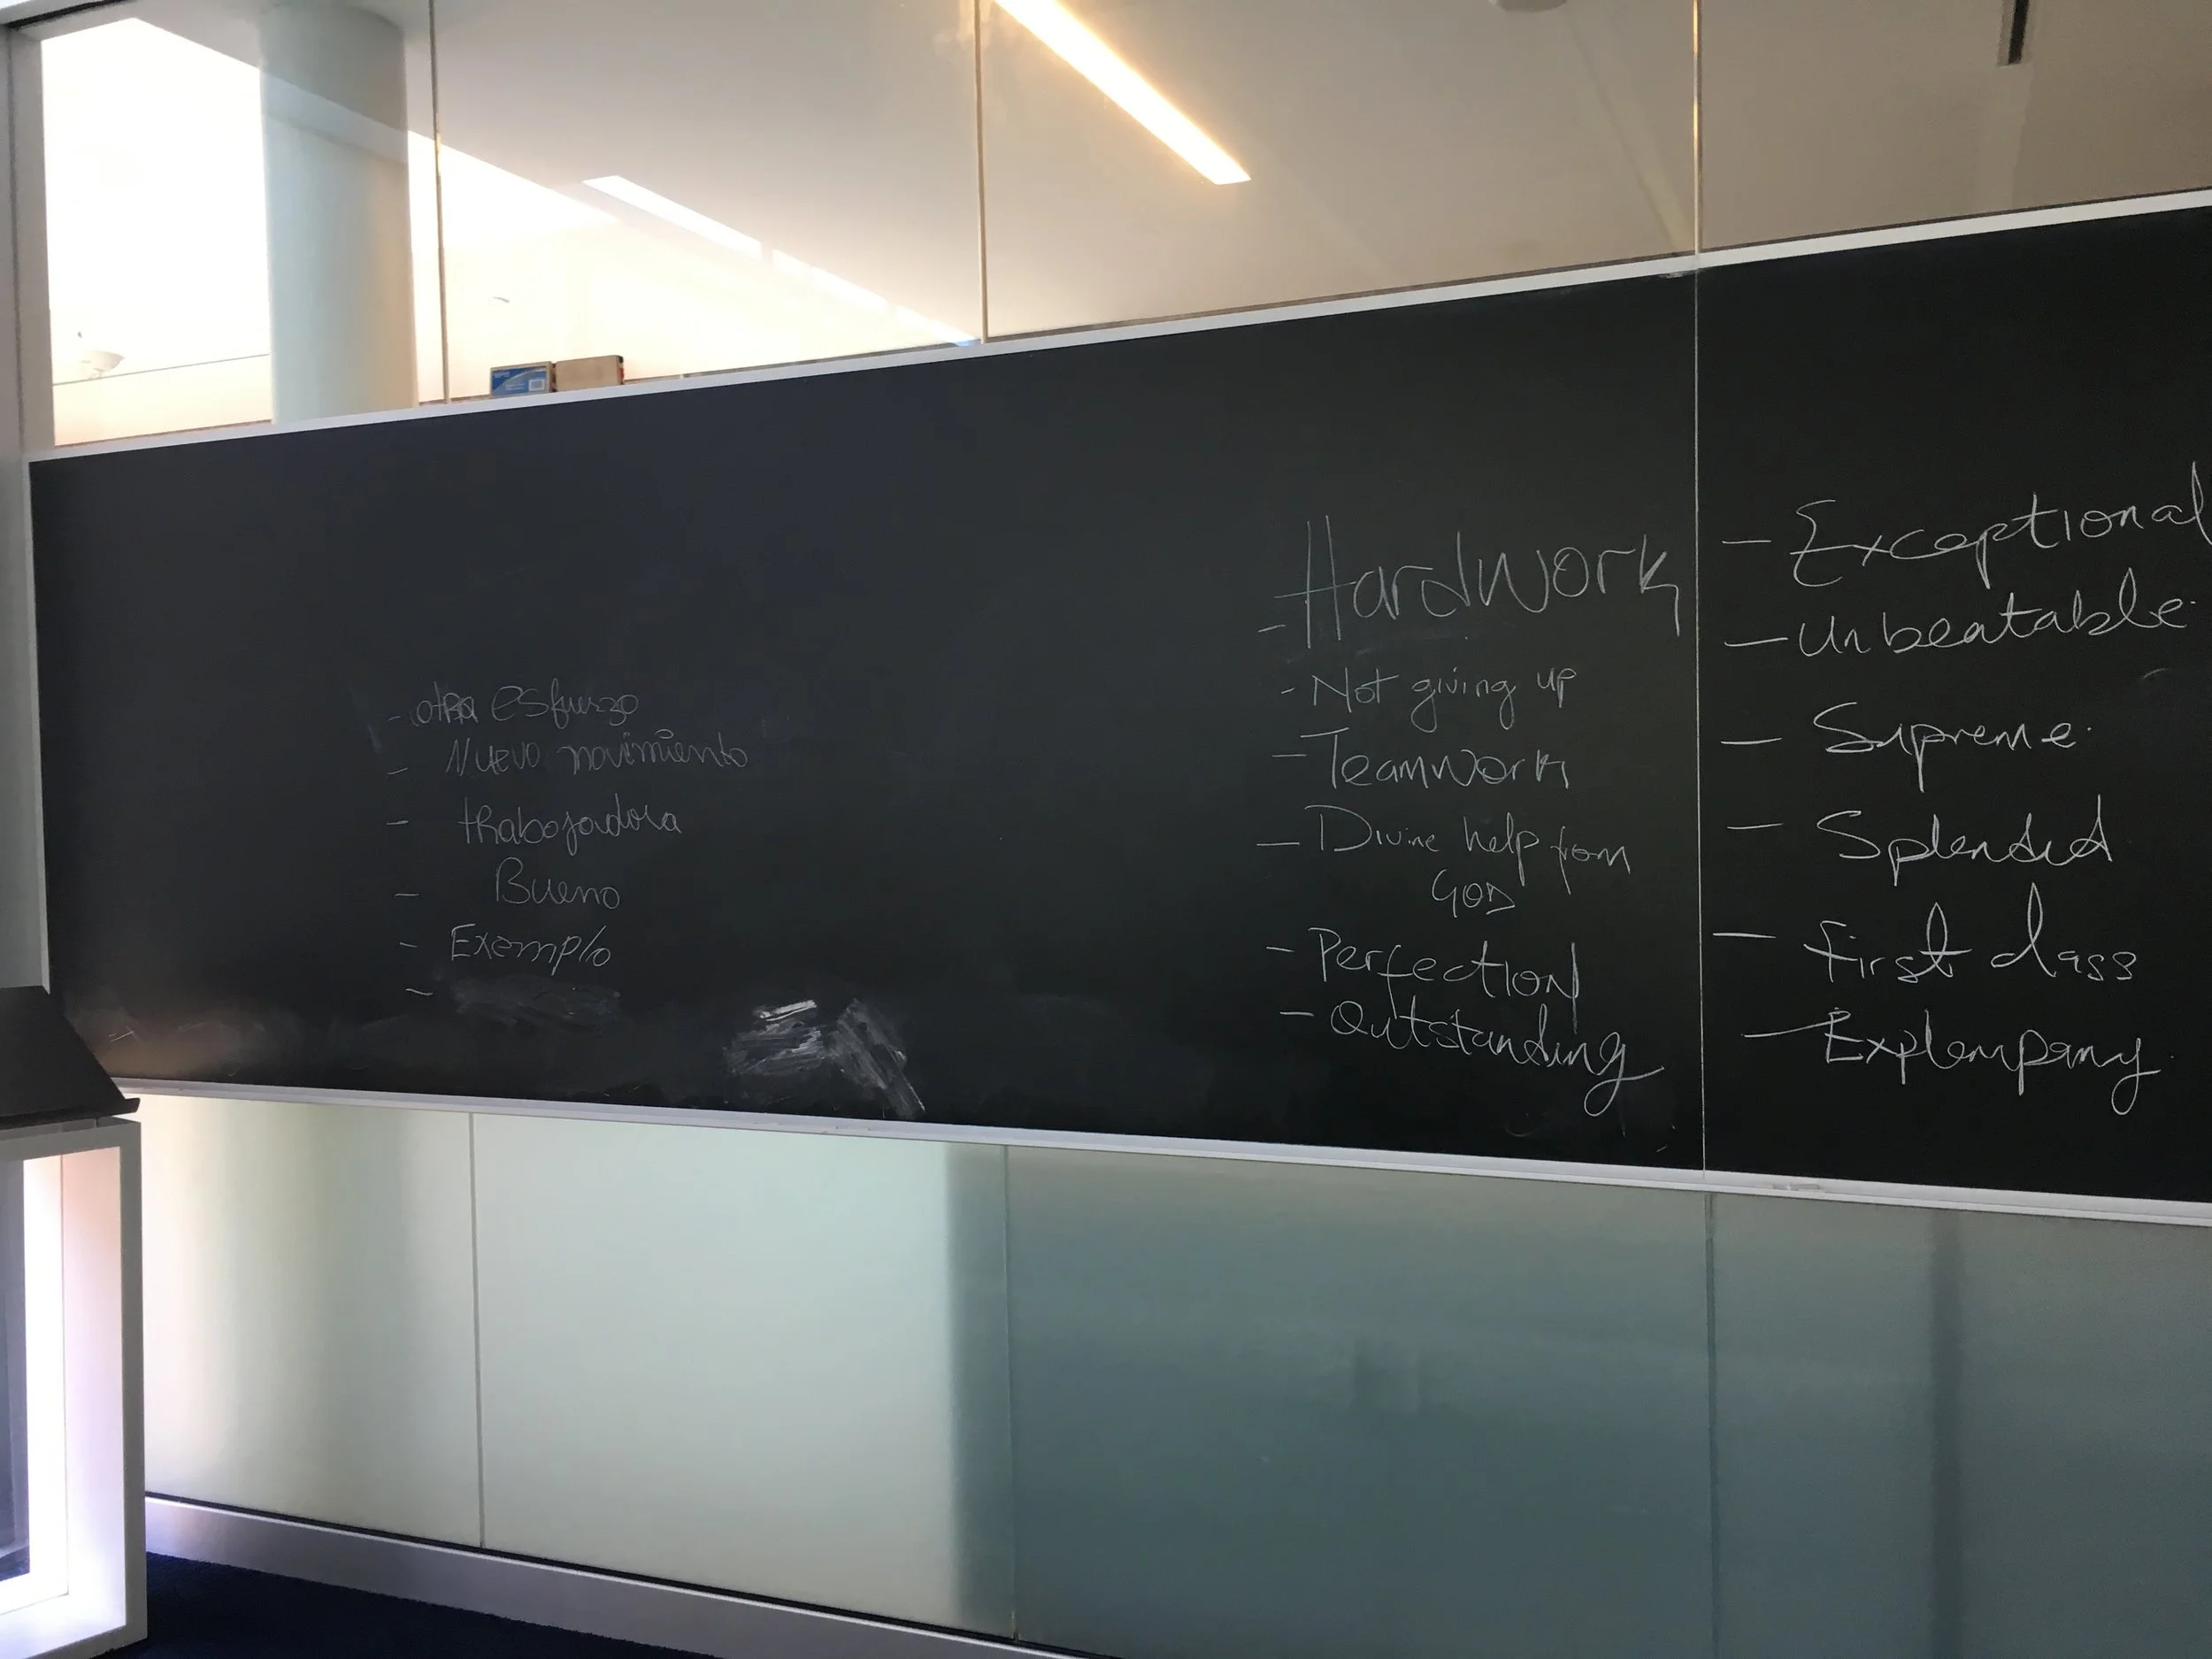 - otra esfuerzo
- Nuevo movimiento
- trabajadora
- Bueno
- Exemplo
-
- Hardwork
- Not giving up
- Teamwork
- Divine help from
GOD
- Perfection
- Outstanding
- Exceptional
- Unbeatable.
- Supreme.
- Splendid
- First class
- Explempany.